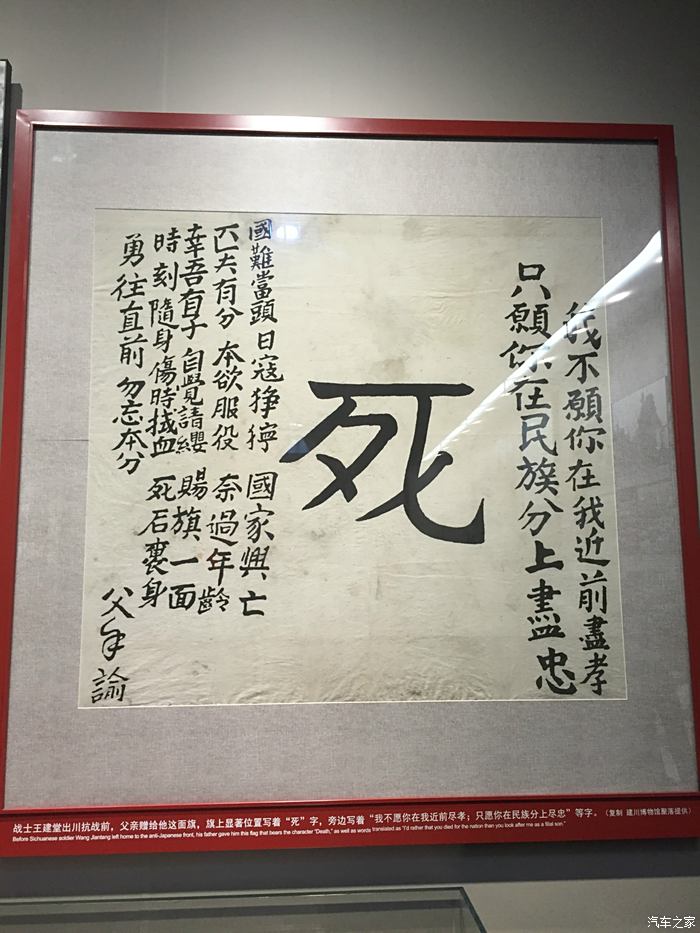 我不願你在我近前盡孝
只願你在民族分上盡忠
死
國難當頭 日寇猙獰 國家興亡
匹夫有分 本欲服役 奈過年齡
幸吾有子 自覺請纓 賜旗一面
時刻隨身 傷時拭血 死后裹身
勇往直前 勿忘本分
父手諭
战士王建堂出川抗战前，父亲赠给他这面旗，旗上显著位置写着“死”字，旁边写着“我不愿你在我近前尽孝；只愿你在民族分上尽忠”等字。（复制 建川博物馆聚落提供）
Before Sichuanese soldier Wang Jiantang left home to the anti-Japanese front, his father gave him this flag that bears the character "Death," as well as words translated as "I'd rather that you died for the nation than you look after me as a filial son."
汽车之家